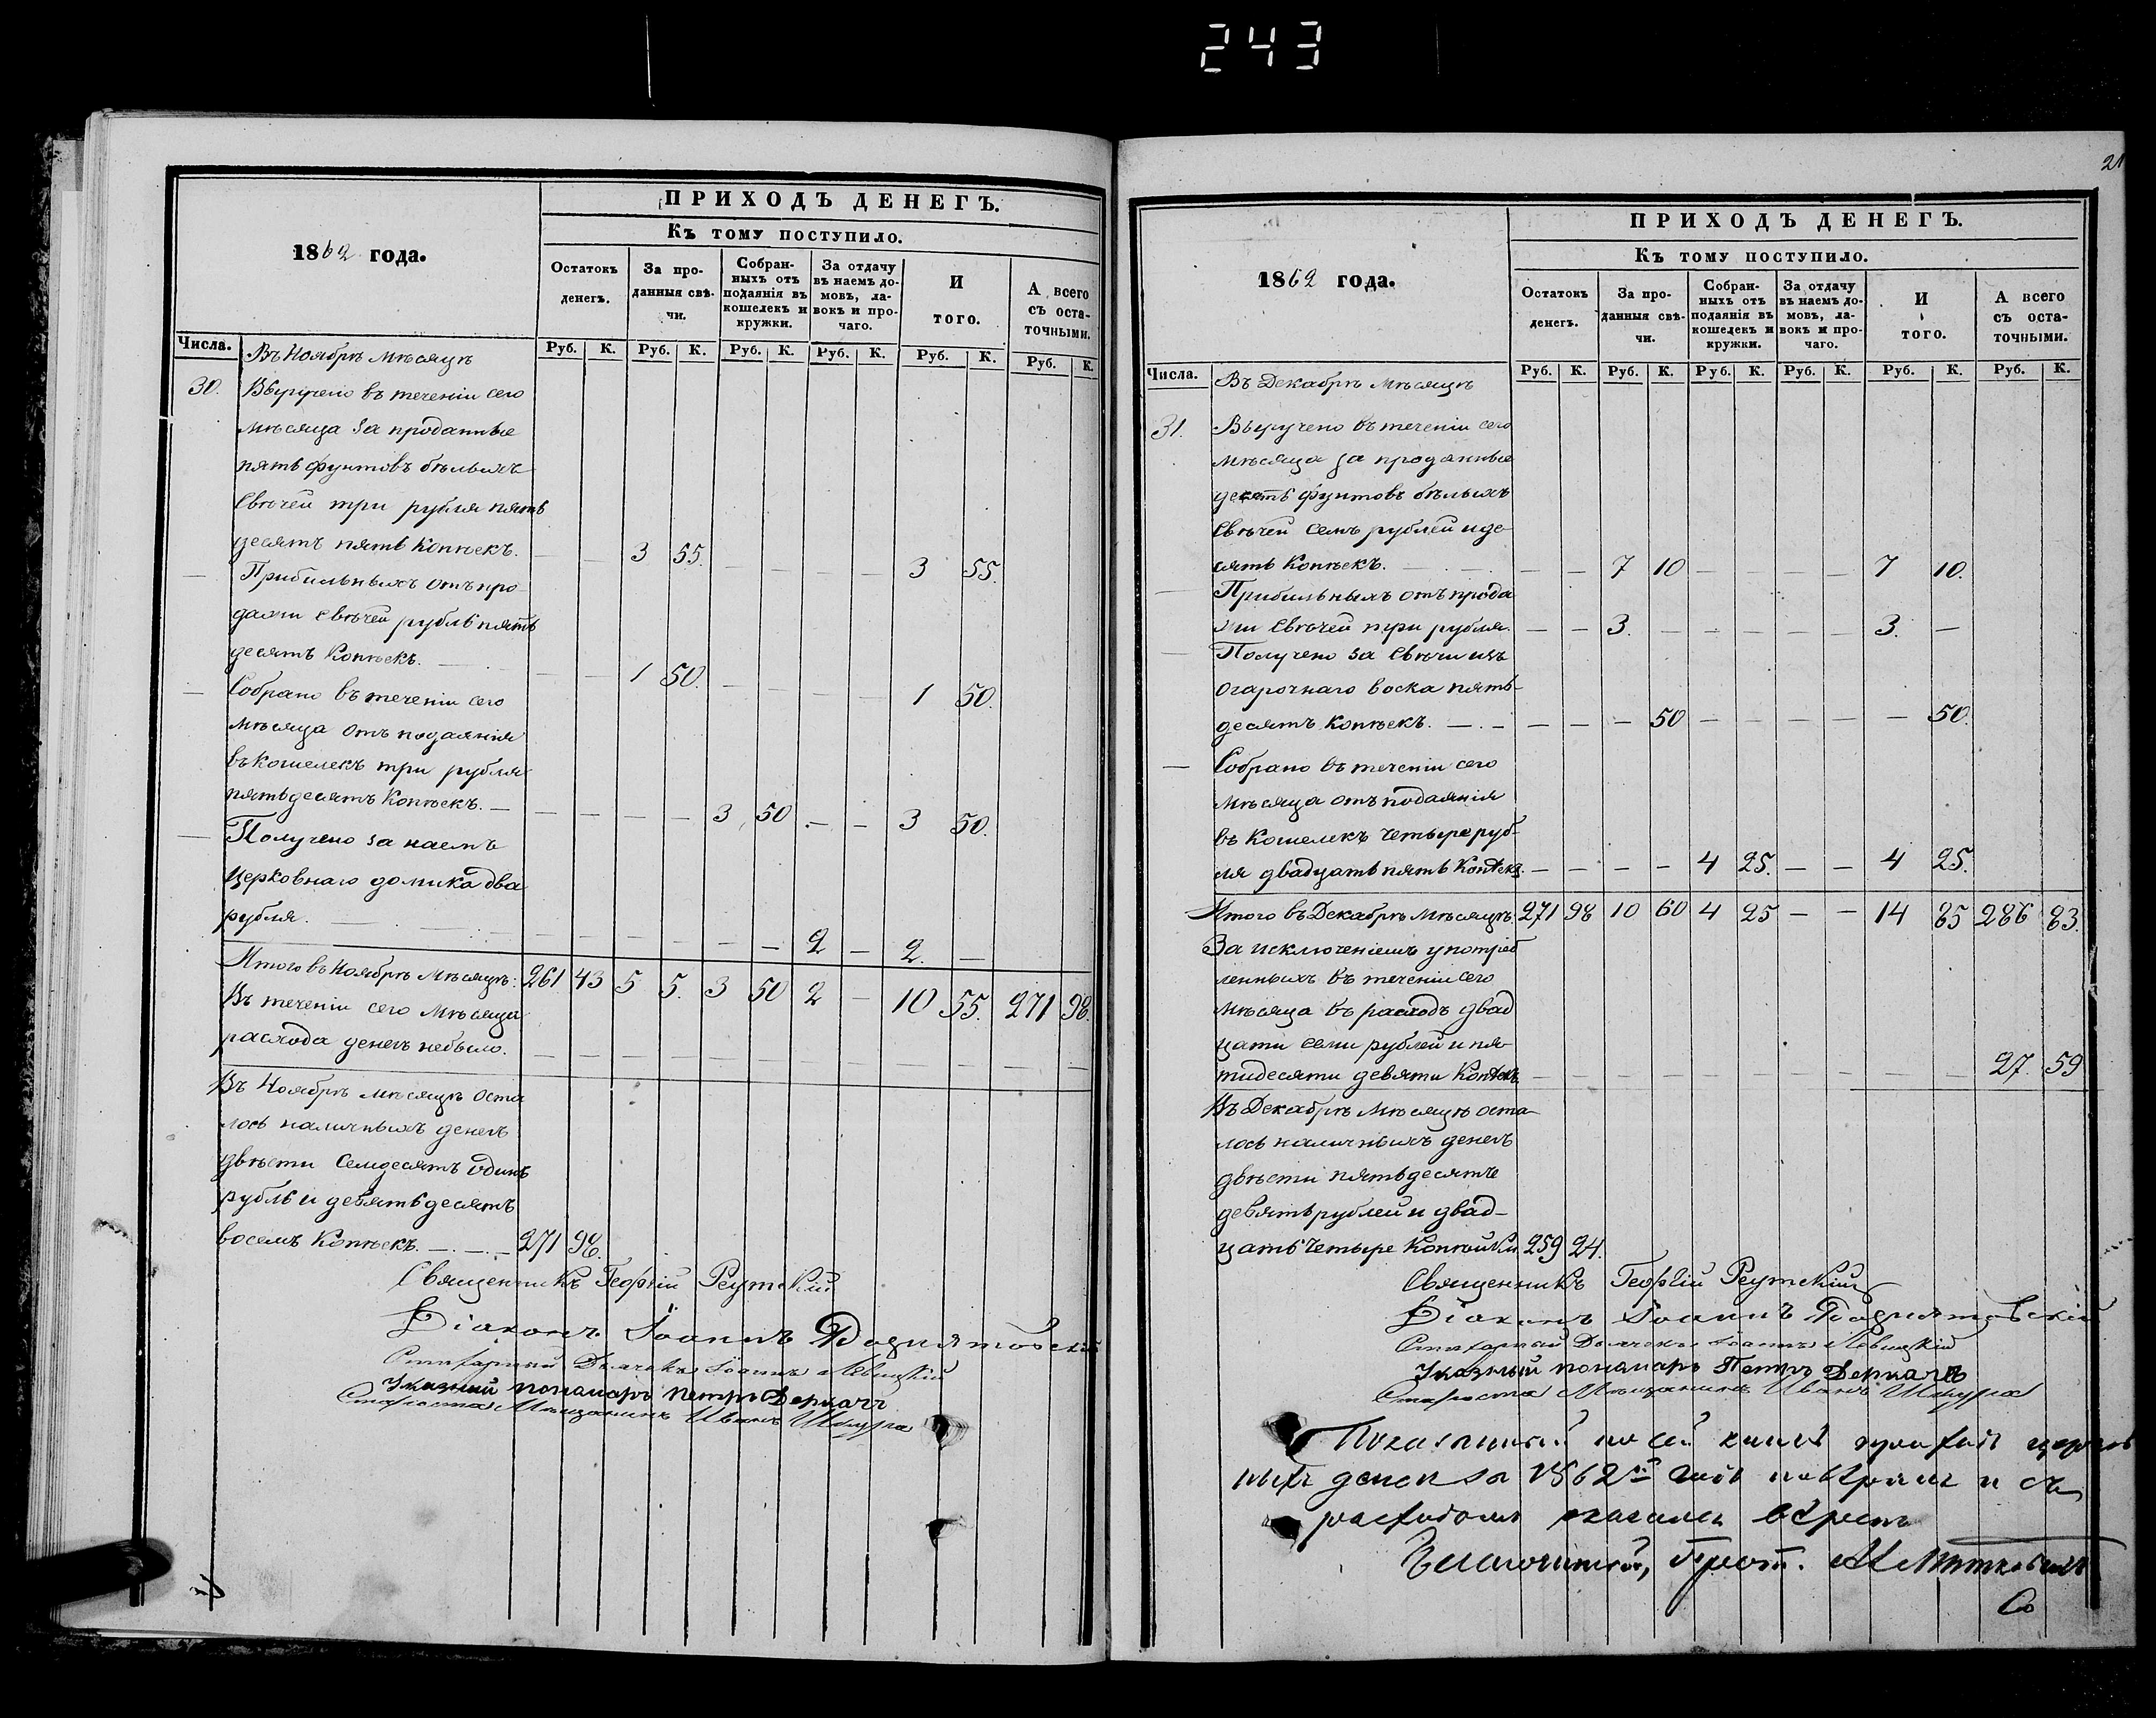 243
ПРИХОДЪ ДЕНЕГЪ.
Къ тому поступило.
1862 года.
Остатокъ денегъ.
За проданныя свѣчи.
Собранныхъ отъ подаянія въ кошелекъ и кружки.
За отдачу въ наемъ домовъ, лавокъ и прочаго.
И того.
А всего съ остаточными.
Числа.
Руб. К. Руб. К. Руб. К. Руб. К. Руб. К. Руб. К.
Въ Ноябрѣ мѣсяцѣ
30. Выручено въ теченіи сего
мѣсяца за проданные
пять фунтовъ бѣлыхъ
свѣчей три рубля пять
десятъ пять копѣекъ. — — 3 55. — — — — 3 55.
— Прибыльныхъ отъ про-
дажи свѣчей рубль пять
десятъ копѣекъ. — — 1 50. — — — — 1 50.
— Собрано въ теченіи сего
мѣсяца отъ подаянія
въ кошелекъ три рубля
пятьдесятъ копѣекъ. — — — — — 3 50 — — 3 50.
— Получено за наемъ
церковнаго домика два
рубля. — — — — — — — 2 — 2. —
Итого въ Ноябрѣ мѣсяцѣ: 261 43 5 5. 3 50 2 — 10 55. 271 98.
Въ теченіи сего мѣсяца
расхода денегъ небыло. — — — — — — — — — — — —
Въ Ноябрѣ мѣсяцѣ оста
лось наличныхъ денегъ
двѣсти семдесятъ одинъ
рубль и девятьдесятъ
восемъ копѣекъ. — — — 271 98.
Священникъ Георгій Реутскій
Діаконъ Іоаннъ
Дьячекъ Іоаннъ Левицкій
Указный пономарь Петръ Деркачъ
Староста Мѣщанинъ Иванъ
21
ПРИХОДЪ ДЕНЕГЪ.
Къ тому поступило.
1862 года.
Остатокъ денегъ.
За проданныя свѣчи.
Собранныхъ отъ подаянія въ кошелекъ и кружки.
За отдачу въ наемъ домовъ, лавокъ и прочаго.
И того.
А всего съ остаточными.
Числа.
Руб. К. Руб. К. Руб. К. Руб. К. Руб. К. Руб. К.
Въ Декабрѣ мѣсяцѣ
31. Выручено въ теченіи сего
мѣсяца за проданные
десять фунтовъ бѣлыхъ
свѣчей семь рублей и де-
сять копѣекъ. — — — — 7 10 — — — — 7 10.
— Прибыльныхъ отъ прода
жи свѣчей три рубля. — — 3. — — — — — 3. —
— Получено за свѣчи изъ
огарочнаго воска пять-
десятъ копѣекъ. — — — — — 50 — — — — — 50.
— Собрано въ теченіи сего
мѣсяца отъ подаянія
въ кошелекъ четыре руб-
ля двадцать пять копѣекъ. — — — — 4 25. — — 4 25.
Итого въ Декабрѣ мѣсяцѣ: 271 98 10 60 4 25 — — 14 85 286 83.
За исключеніемъ употреб
ленныхъ въ теченіи сего
мѣсяца въ расходъ двад
цати семи рублей и пя-
тидесяти девяти копѣекъ — — — — — — — — — — 27. 59
Въ Декабрѣ мѣсяцѣ оста-
лось наличныхъ денегъ
двѣсти пятьдесятъ
девять рублей и двад-
цать четыре копѣйки 259 24.
Священникъ Георгій Реутскій
Діаконъ Іоаннъ
Дьячекъ Іоаннъ Левицкій
Указный пономарь Петръ Деркачъ
Староста Мѣщанинъ Иванъ
по сей книгѣ приходъ церков
ныхъ денегъ за 1862й годъ и съ
расходомъ
Благочинный, Прот.